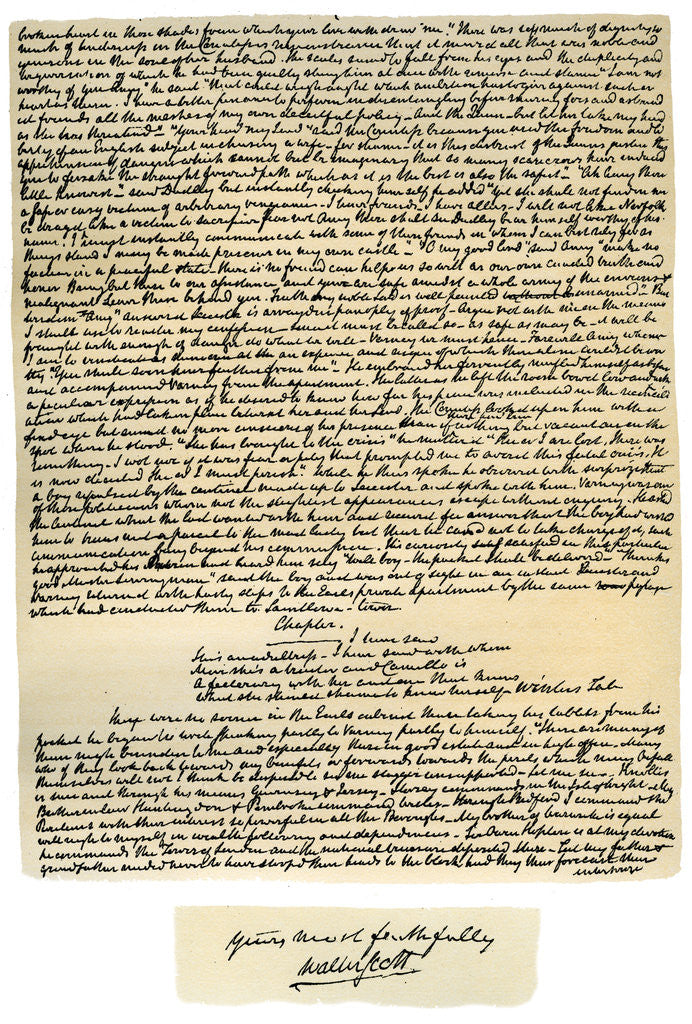 broken heart in those shades from which your love withdrew me." There was so much of dignity so
much of tenderness in the Countess's remonstrance that it moved all that was noble and
generous in the soul of her husband. The scales seemed to fall from his eyes and the duplicity and
tergiversation of which he had been guilty stung him at once with remorse and shame "I am not
worthy of you Amy" he said "that could weigh aught which ambition has to give against such a
heart as thine. I have a bitter penance to perform in disentangling before sneering foes and astound
ed friends all the meshes of my own deceitful policy - And the Queen - but let her take my head
as she has threatend" - "Your head my Lord" said the Countess because you used the freedom and li
berty of an English subject in chusing a wife - for shame - it is this distrust of the Queens justice this
apprehension of danger which cannot but be imaginary that as so many scarecrows have induced
you to forsake the straight forward path which as it is the best is also the safest" - "Ah Amy thou
little knowest" - said Dudley but instantly checking himself he added "Yet she shall not find in me
a safe or easy victim of arbitrary vengeance - I have friends - I have allies - I will not like Norfolk
be dragd like a victim to sacrifice fear not Amy thou shalt see Dudley bear himself worthy of his
name. I must instantly communicate with some of those friends on whom I can best rely for as
things stand I may be made prisoner in my own castle" - "O my good lord" said Amy "make no
faction in a peaceful state - There is no friend can help us so well as our own candid truth and
honor Bring but these to our assistance and you are safe amidst a whole army of the envious &
malignant Leave these behind you
answered Leicester is arrayed in panoply of proof - Argue not with me on the means
I shall use to render my confession - since it must be called so - as safe as may be - it will be
fraught with enough of danger do what we will - Varney we must hence - Farewell Amy whom
I am to vindicate as mine own at an expence and risque of which thou alone couldst be wor
thy "You shall soon hear further from me" - He embraced her fervently muffled himself as before
and accompanied Varney from the apartment. The latter as he left the room bowd low and with
a peculiar expression as if he desired to know how far his peace was included in the reconcili
ation which had taken place betwixt her and her lord. The Countess looked upon him with a
fixd eye but seemed no more conscious of his presence than if nothing but vacant air in the
spot where he stood. "She has brought me to the crisis" he mutterd "She or I are lost. There was
something - I wot not if it was fear or pity that prompted me to avoid this fatal crisis. It
is now decided She or I must perish". While he thus spoke he observed with surprize that
a boy repulsed by the centinel made up to Leicester and spoke with him. Varney was one
of those politicians whom not the slightest appearances escape without enquiry. He asked
the centinel what the lad wanted with him and received for answer that the boy had wishd
him to transmit a parcel to the mad lady but that he cared not to take charge of it, such
communication being beyond his commission. His curiosity satisfied in that particular
he approached his Patron and heard him say "Well boy - the packet shall be deliverd" - "Thanks
good Master Serving man" said the boy and was out of sight in an instant Leicester and
Varney returned with hasty steps to the Earls private apartment by the same passage
which had conducted them to Saintlowe - tower.
Chapter.
I have said
She's an adultress - I have said with whom
More she's a traitor and Camillo is
A federary with her and one that knows
What she should shame to know herself - Winters Tale
They were no sooner in the Earls cabinet than taking his tablets from his
pocket he began to write speaking partly to Varney partly to himself. "There are many of
them nigh bounden to me and especially those in good estate and in high office - Many
who if they look back towards my benefits or forwards towards the perils which may befall
themselves will not I think be disposed to see me stagger unsupported - Let me see - Knollis
is sure and through his means Guernsey & Jersey - Horsey commands in the Isle of Wight - My
Brother in law Huntingdon & Pembroke command Wales - Through Bedford I command the
Puritans with their interest so powerful in all the Boroughs - My brother of Warwick is equal
well nigh to myself in wealth following and dependences - Sir Owen Hopton is at my devotion
he commands the Tower of London and the national treasure deposited there - My father &
grandfather needed never to have stoopd their heads to the block had they thus forecast their
enterprize
Yours most faithfully
Walter Scott